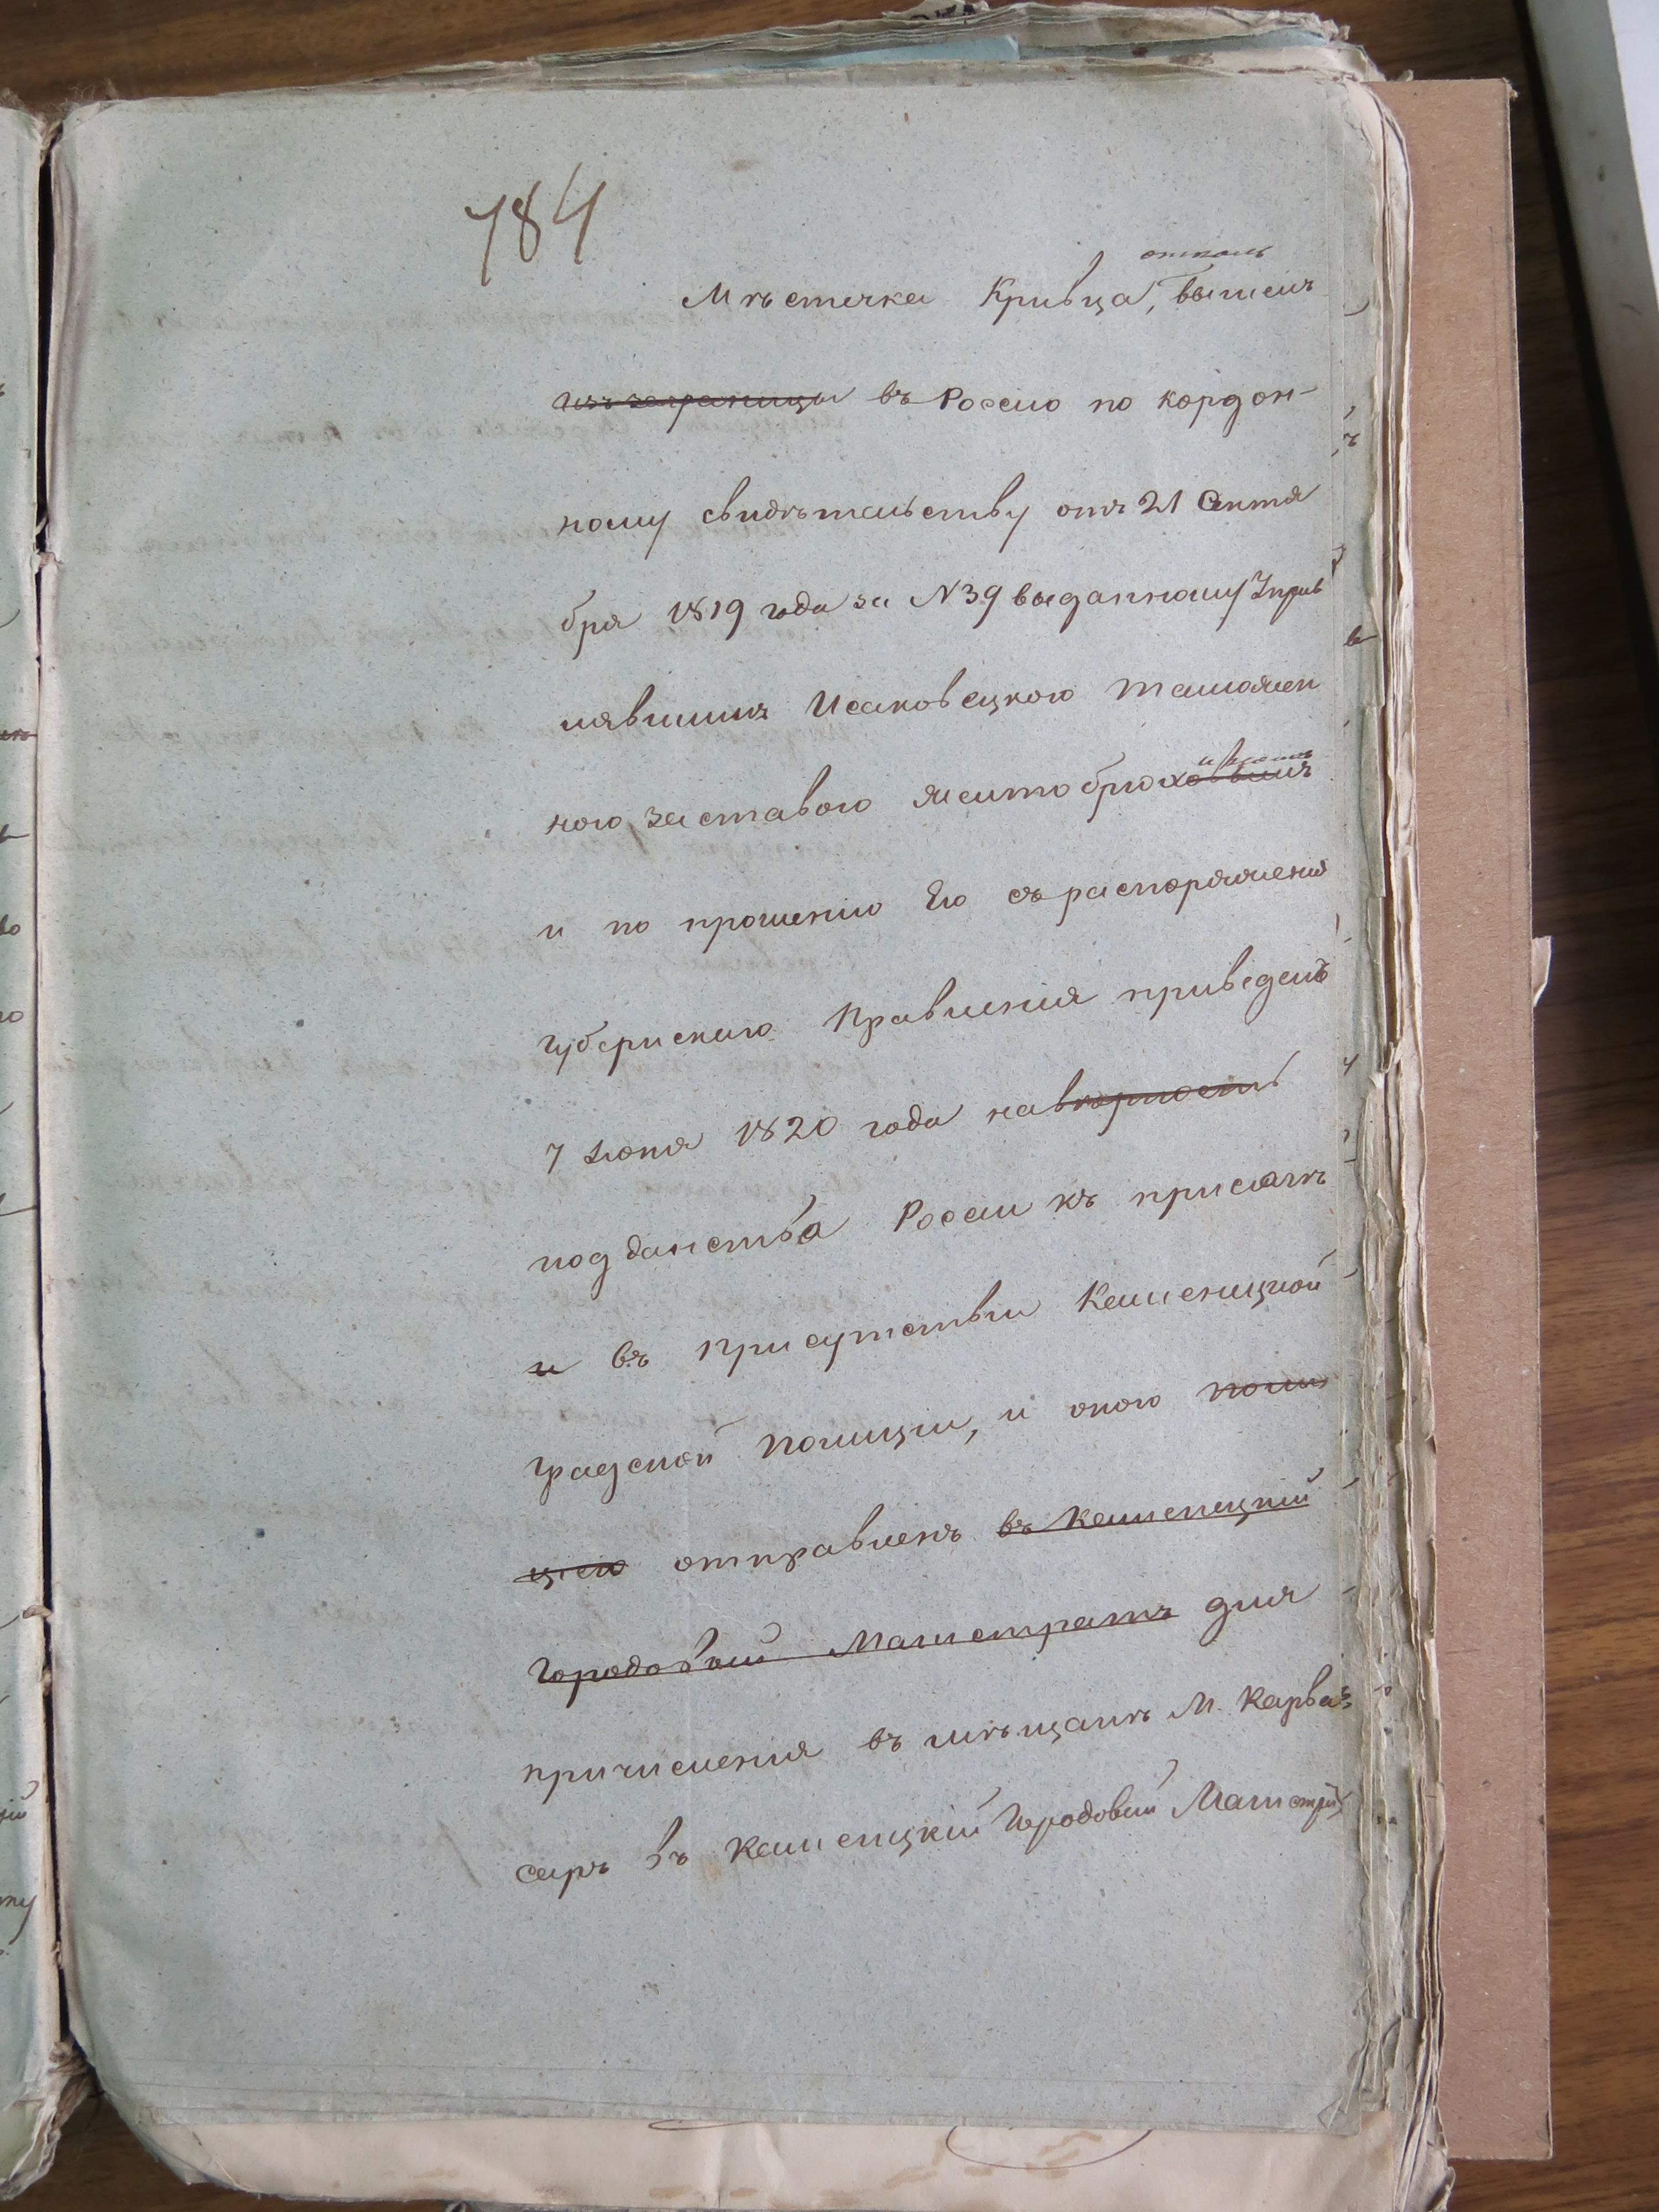 784
откаль
Мѣстечка Кривца, вышелъ
изъ заграницы въ Росию по кордон-
ному свидѣтельству отъ 21 Сентя
бря 1819 года за N 39 выданному Управ
лявшимъ Исаковецкою таможен
ною заставою
и по прошению Его съ распоряжения
Губернского Правления приведенъ
7 Июня 1820 года на вѣрность
подданства России къ присягѣ
и въ присутствии Каменецкой
градской Полиции, и оною поли
циею отправленъ въ Каменецкий
Городовый Магистратъ для
причисления въ мѣщанѣ М. Карва
саръ въ Каменецкий Городовый Магистра